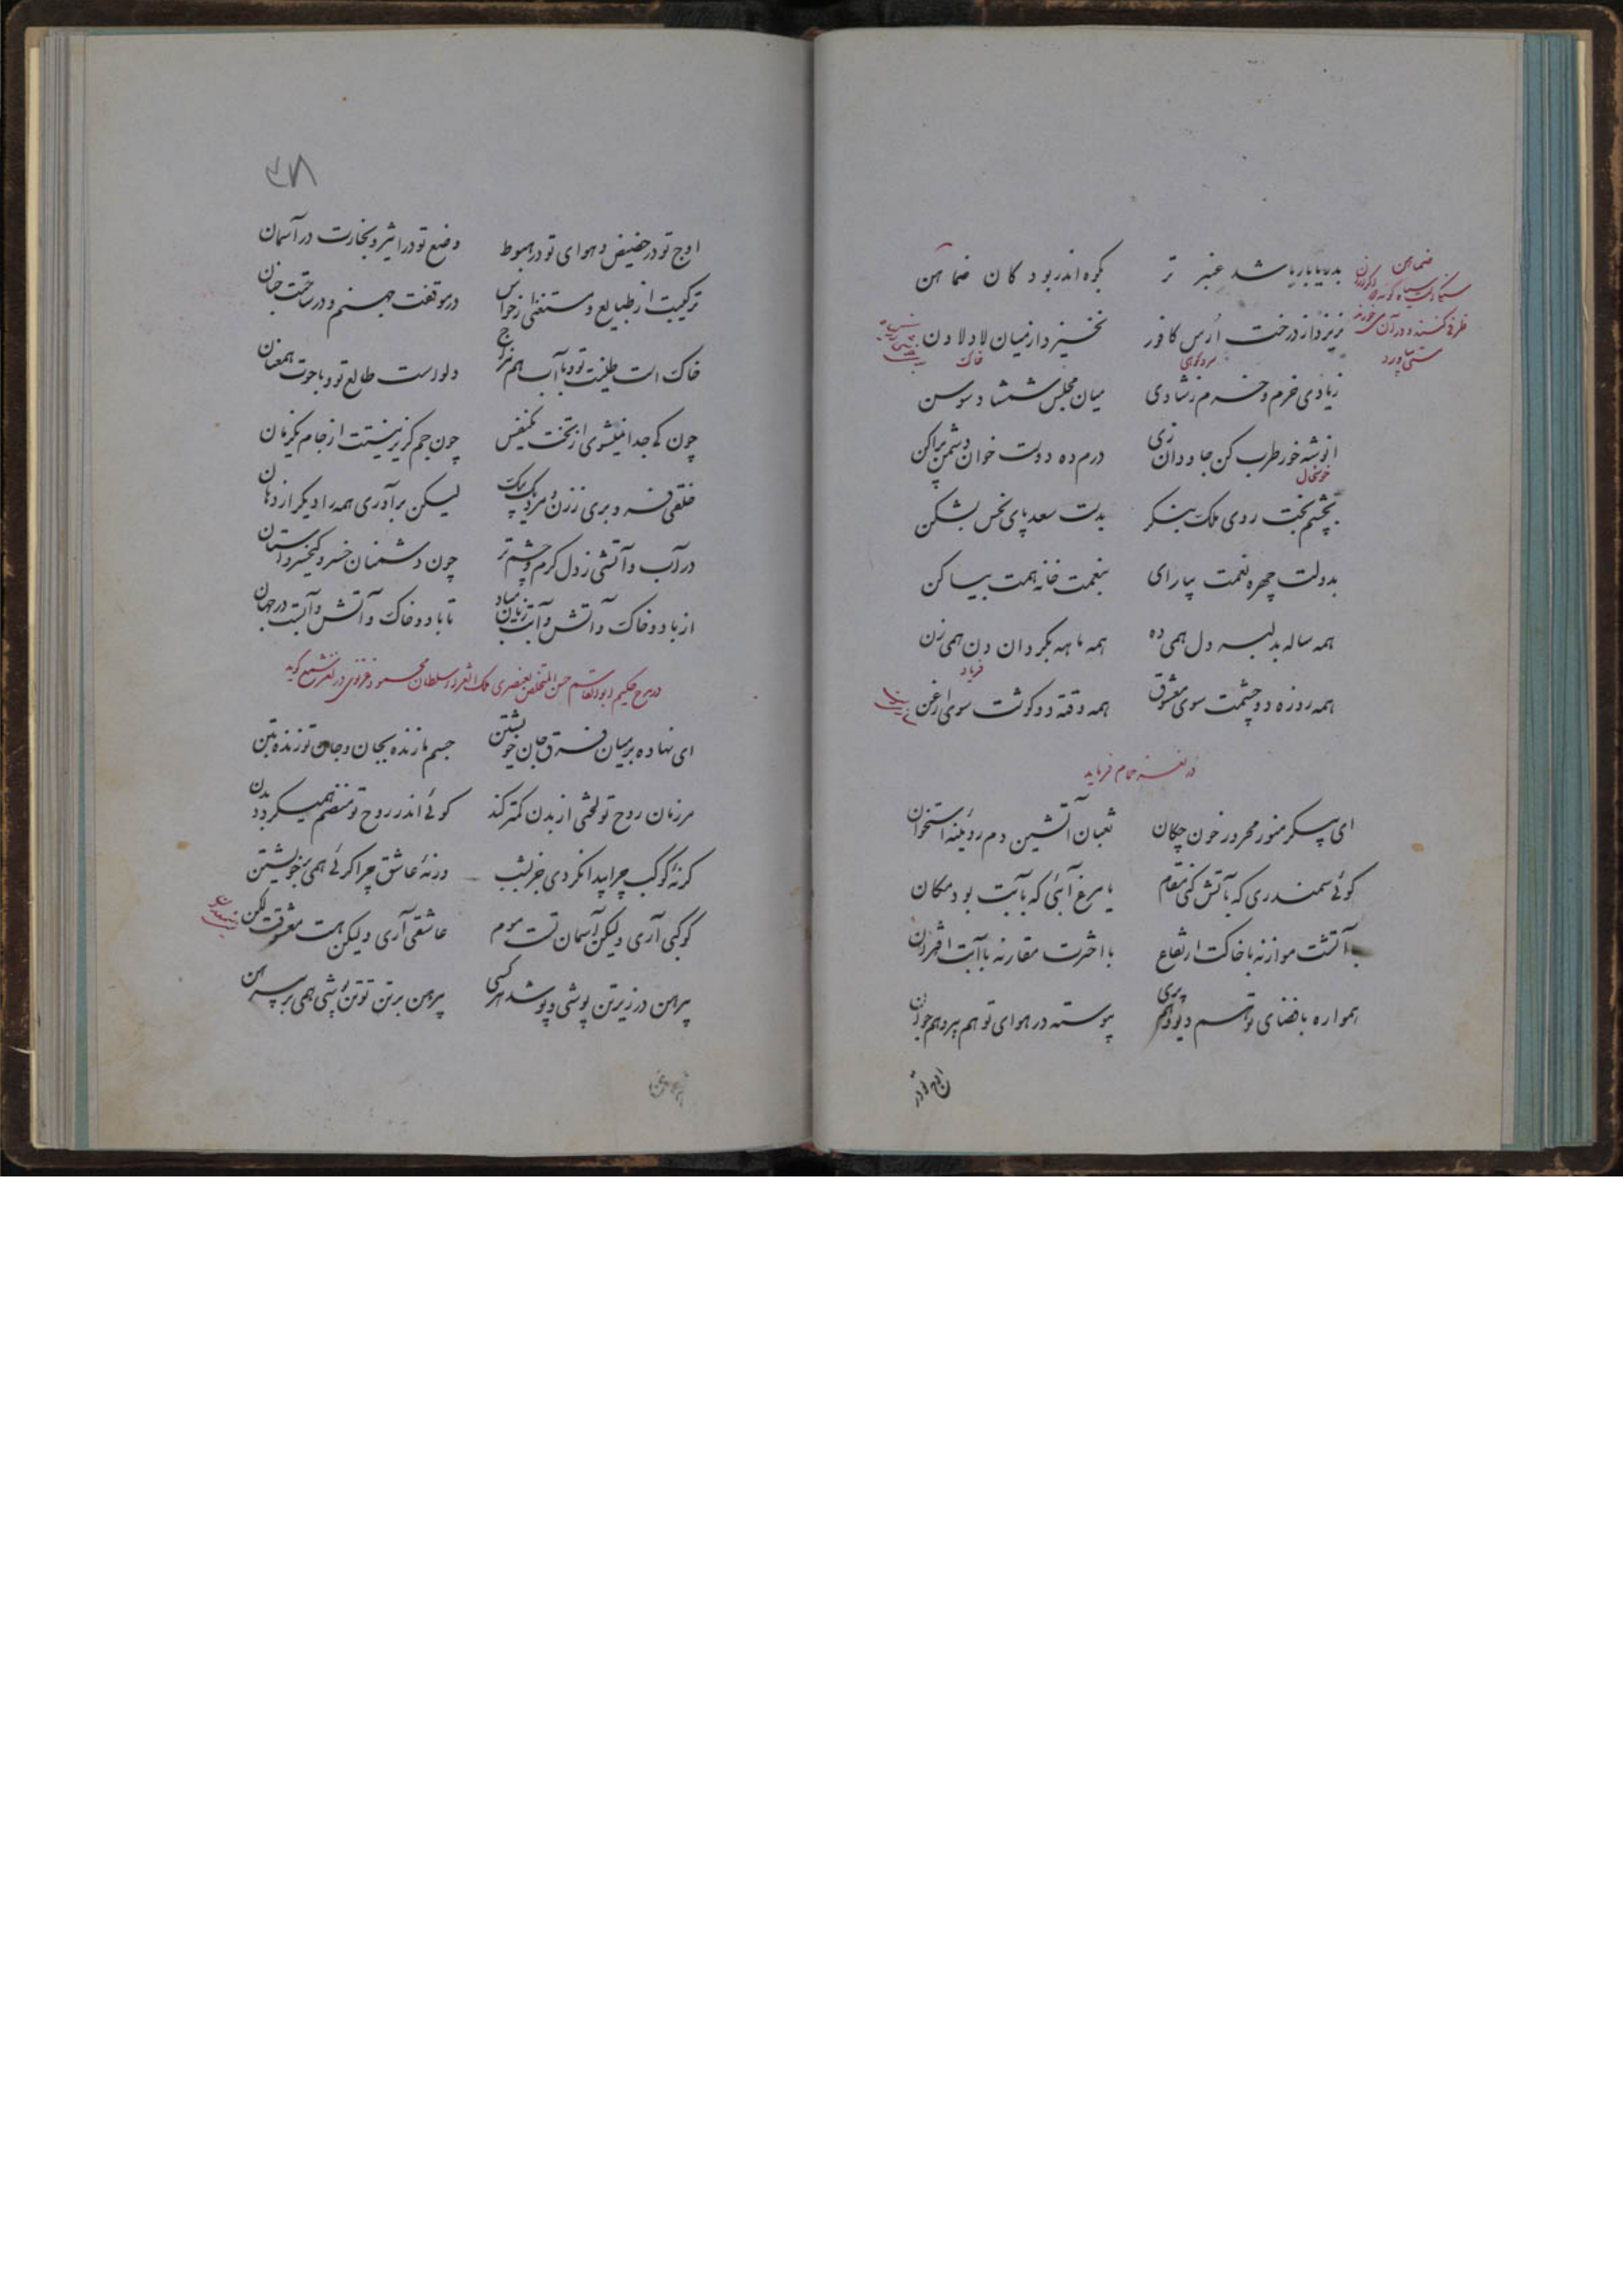 بدریا بار باشد عنبر تر بکوه اندر بود کان ضماهن
نریزد از درخت ارس کافور نخیزد از میان لاد لادن
سرو کوهی
خاک
زیادی خرم و خرم زشادی میان مجلس شمشاد و سوسن
انوشه خور طرب کن جاودان زی درم ده دوست خوان دشمن پراکن
خوشحال
بچشم بخت روی ملک بنگر بدست سعد پای نحس بشکن
بدولت چهره نعمت بیارای بنعمت خانه همت بیاکن
همه ساله بدلبر دل همی ده همه ماهه بگرد دن همی دن
فریاد
همه روزه دو چشمت سوی معشوق همه وقته دو گوشت سوی ارغن
در لغز حمام فرماید
ای پیکر منور محرور خون چکان ثعبان آتشین دم روئینه استخوان
گوئی سمندری که بآتش کنی مقام یا مرغ آبئی که بآبت بود مکان
با آتشت موازنه با خاکت ارتفاع با اخترت مقارنه با آبت اقتران
همواره با فضای تو هم دیو و هم پری پیوسته در هوای تو هم پیر و هم جوان
اوج تو در
۴۸
اوج تو در حضیض و هوای تو در هبوط وضع تو در اثیر و بخارت در آسمان
ترکیبت از طبایع و مستغنی از حواس در موقفت جهنم و در ساحتت جنان
خاک است طینت تو و با آب هم مزاج دلو است طالع تو و با حوت همعنان
چون کی جدا نمیشوی از تخت یکنفس چون جم گزیر نیستت از جام یکزمان
خلقی فرو بری ز زن و مرد یک بیک لیکن برآوری همه را دیگر از دهان
در آب و آتشی ز دل گرم و چشم تر چون دشمنان خسرو کیخسرو آستان
از باد و خاک و آتش و آبت زیان مباد تا باد و خاک و آتش و آبست در جهان
در مدح حکیم ابوالقاسم حسن المتخلص بعنصری ملک الشعراء سلطان محمود غزنوی در لغز شمع گوید
ای نهاده بر میان فرق جان خویشتن جسم ما زنده بجان و جان تو زنده بتن
هر زمان روح تو لختی از بدن کمتر کند گوئی اندر روح تو منضم همیگردد بدن
گر نئی کوکب چرا پیدا نگردی جز بشب ور نئی عاشق چرا گرئی همی بر خویشتن
کوکبی آری ولیکن آسمان تست موم عاشقی آری ولیکن هست معشوقت لگن
پیرهن در زیر تن پوشی و پوشد هر کسی پیرهن بر تن تو تن پوشی همی بر پیرهن